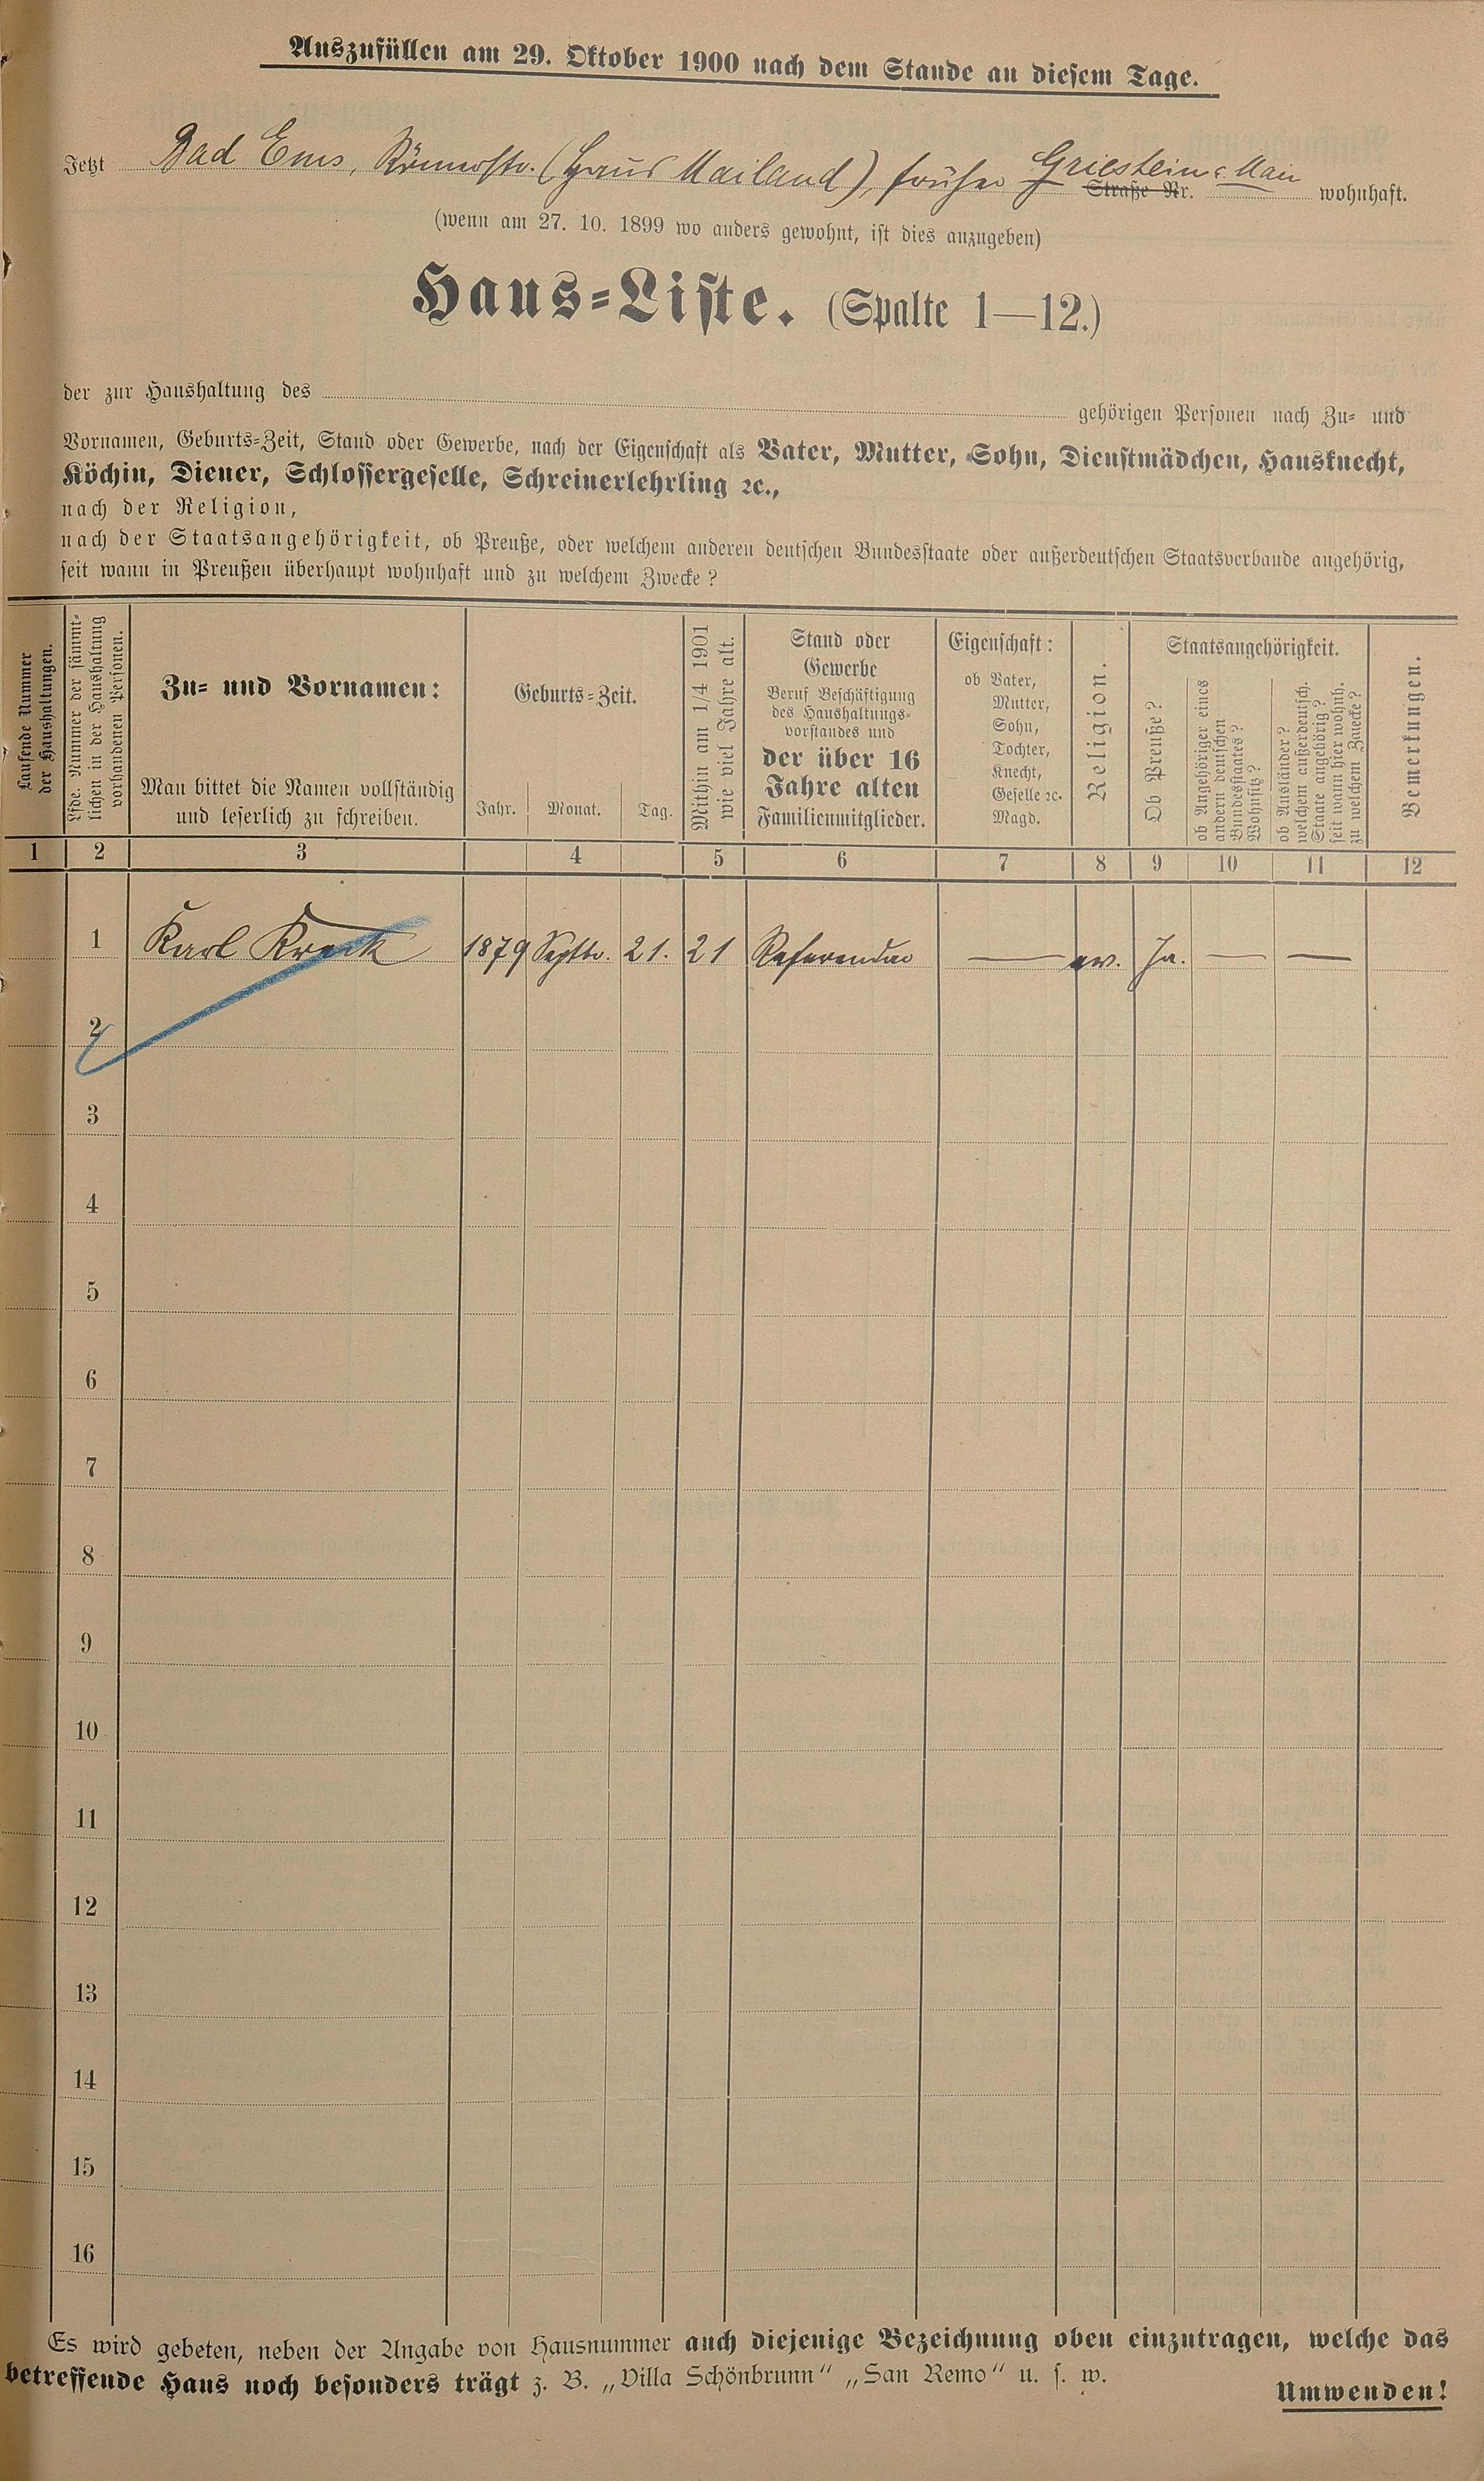 Auszufüllen am 29. Oktober 1900 nach dem Stande an diesem Tage.
Jetzt Bad Ems, Römerstr. (Haus Mailand), früher Griesheim a. Main Straße Nr. wohnhaft.
(wenn am 27. 10. 1899 wo anders gewohnt, ist dies anzugeben)
Haus-Liste. (Spalte 1—12.)
der zur Haushaltung des gehörigen Personen nach Zu- und
Vornamen, Geburts-Zeit, Stand oder Gewerbe, nach der Eigenschaft als Vater, Mutter, Sohn, Dienstmädchen, Hausknecht,
Köchin, Diener, Schlossergeselle, Schreinerlehrling ꝛc.,
nach der Religion,
nach der Staatsangehörigkeit, ob Preuße, oder welchem anderen deutschen Bundesstaate oder außerdeutschen Staatsverbande angehörig,
seit wann in Preußen überhaupt wohnhaft und zu welchem Zwecke?
Laufende Nummer
der Haushaltungen.
Lfde. Nummer der sämmt-
lichen in der Haushaltung
vorhandenen Personen.
Zu- und Vornamen:
Man bittet die Namen vollständig
und leserlich zu schreiben.
Geburts-Zeit.
Jahr. Monat. Tag.
Mithin am 1/4 1901
wie viel Jahre alt.
Stand oder
Gewerbe
Beruf Beschäftigung
des Haushaltungs-
vorstandes und
der über 16
Jahre alten
Familienmitglieder.
Eigenschaft:
ob Vater,
Mutter,
Sohn,
Tochter,
Knecht,
Geselle ꝛc.
Magd.
Religion.
Staatsangehörigkeit.
Ob Preuße?
ob Angehöriger eines
andern deutschen
Bundesstaates?
Wohnsitz?
ob Ausländer?
welchem außerdeutsch.
Staate angehörig?
seit wann hier wohnh.
zu welchem Zwecke?
Bemerkungen.
1 2 3 4 5 6 7 8 9 10 11 12
1 Karl Kreck 1879 Septbr. 21. 21 Referendar — ev. Ja. — —
2
3
4
5
6
7
8
9
10
11
12
13
14
15
16
Es wird gebeten, neben der Angabe von Hausnummer auch diejenige Bezeichnung oben einzutragen, welche das
betreffende Haus noch besonders trägt z. B. „Villa Schönbrunn“ „San Remo“ u. s. w.
Umwenden!